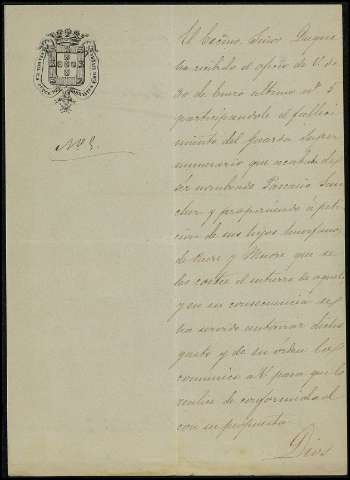 Nº 2.
El Excmo. Señor Duque
ha recibido el oficio de V. de
30 de Enero último nº 5
participandole el falleci
miento del guarda super
numerario que acababa de
ser nombrado Pascasio San
chez y proponiendo á peti
cion de sus hijos huerfanos
de Padre y Madre que se
les costee el entierro de aquel
y en su consecuencia se
ha servido autorizar dicho
gasto y de su órden lo
comunico á V. para que lo
realice de conformidad
con su propuesta.
Dios